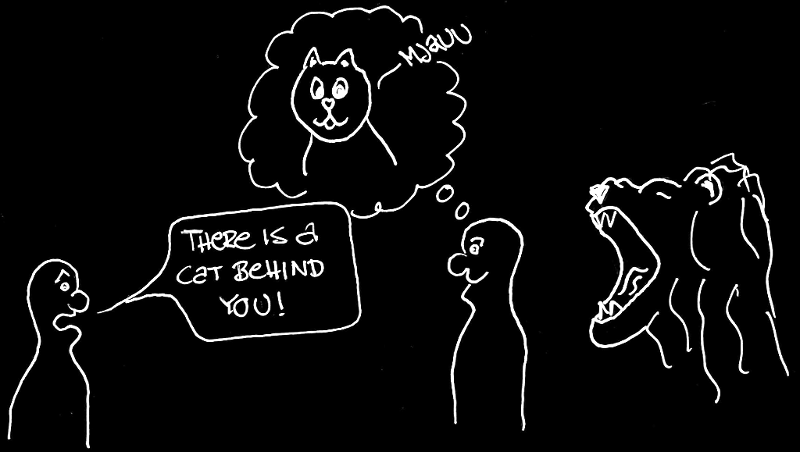 Mjauu
THERE IS a
CaT BEHIND
YOU!